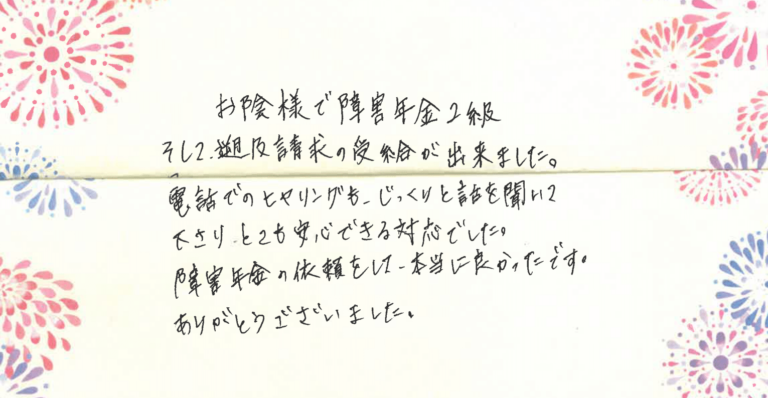 お陰様で障害年金2級
そして、遡及請求の受給が出来ました。
電話でのヒヤリングも、じっくりと話を聞いて
下さり、とても安心できる対応でした。
障害年金の依頼をして、本当に良かったです。
ありがとうございました。